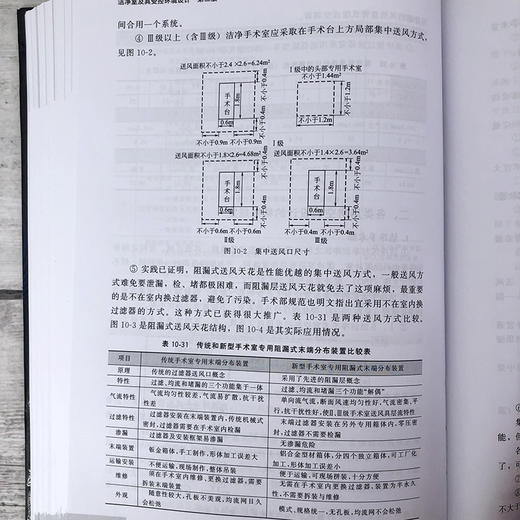 洁净室及其受控环境设计
间合用一个系统。
④ Ⅲ级以上（含Ⅲ级）洁净手术室应采取在手术台上方局部集中送风方式，
见图10-2。
送风面积不小于2.4×2.6=6.24m²
Ⅰ级中的头部专用手术室
不小于1.44m²
手术台
1.8m
0.6m
不小于0.4m
不小于0.4m
不小于0.9m 不小于0.9m
不小于1.2m
不小于1.2m
Ⅰ级
送风面积不小于1.8×2.6=4.68m²
送风面积不小于1.4×2.6=3.64m²
手术台
1.8m
0.6m
不小于0.4m
不小于0.4m
不小于0.6m 不小于0.6m
Ⅱ级
手术台
1.8m
0.6m
不小于0.4m
不小于0.4m
不小于0.4m 不小于0.4m
Ⅲ级
图10-2 集中送风口尺寸
⑤ 实践已证明，阻漏式送风天花是性能优越的集中送风方式，一般送风方
式难免要泄漏，检、堵都极困难，而阻漏层送风天花就免去了这项麻烦，最重要
的是不在室内换过滤器，避免了污染。手术部规范也明文指出宜采用不在室内换
过滤器的方式。这种方式已获得很大推广。表10-31是两种送风方式比较，
图10-3是阻漏式送风天花结构，图10-4是其实际应用情况。
表10-31 传统和新型手术室专用阻漏式末端分布装置比较表
项目 传统手术室专用末端分布装置 新型手术室专用阻漏式末端分布装置
原理 传统的过滤器送风口概念 采用了先进的阻漏层概念
特性 过滤、均流和堵漏的三个功能集于一体 过滤、均流和堵漏三个功能“解偶”
气流特性 气流均匀性较差，气流易扩散，抗干扰性差 单向流气流，断面风速均匀性好，气流密集，平行，抗干扰性好，使Ⅱ、Ⅲ级手术室送风具层流特性
过滤特性 过滤器安装在末端装置内，传统机械式密封，过滤器需要在手术室内检漏 末端过滤器安装在另外专用箱体内，零压密封，过滤器不需要检漏
渗漏 过滤器及安装框架易渗漏 无渗漏危险
末端装置 钣金箱体，手工制作，形位加工误差大 铝合金型材箱体，分四个独立箱体，可工厂化加工，形体加工误差小
运输安装 不方便运输，现场制作，整体吊装 便于运输，可现场拼装，十分方便
维修 须在手术室内维修，更换过滤器，需要拆装末端装置 无需在手术室内更换过滤器，装置为半永久性，不需要拆装与维修
外观 随意性较大，孔板不美观，均流网日久会松弛 模式、规格统一，无孔板，均流网不会松弛